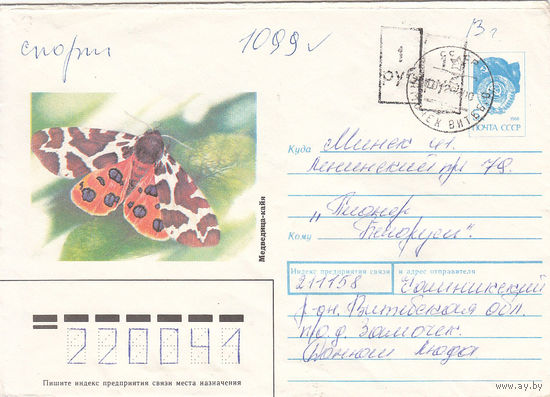 спорт
1099 ✓
1
руб
ПОЧТА СССР
Медведица-кайя
Куда Минск ц.
Ленинский пр 79.
"Пионер
Кому Беларуси".
Индекс предприятия связи и адрес отправителя
211158 Чашникский
р-он. Витебская обл.
п/о д. Замочек.
Люда
220041
Пишите индекс предприятия связи места назначения
www.ay.by